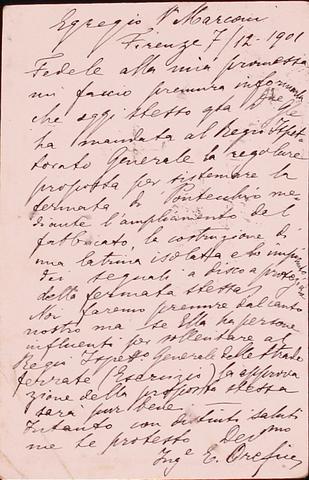 Egregio Sr Marconi
Firenze 7/12-1901
Fedele alla mia promessa
mi faccio premura informarla
che oggi stesso qta
ha mandata al Regio Ispet-
torato Generale la regolare
proposta per sistemare la
fermata di Pontecchio me-
diante l'ampliamento del
fabbricato, la costruzione di
una latrina isolata e lo impianto
dei segnali a disco a protezione
della fermata stessa
Noi faremo premure dal canto
nostro ma se Ella ha persone
influenti per sollecitare al
Regio Ispetto Generale delle Strade
ferrate (Esercizio) la approva
zione della proposta stessa
sarà pur bene
Intanto con distinti saluti
me le protesto Devmo
Inge E. Orefice